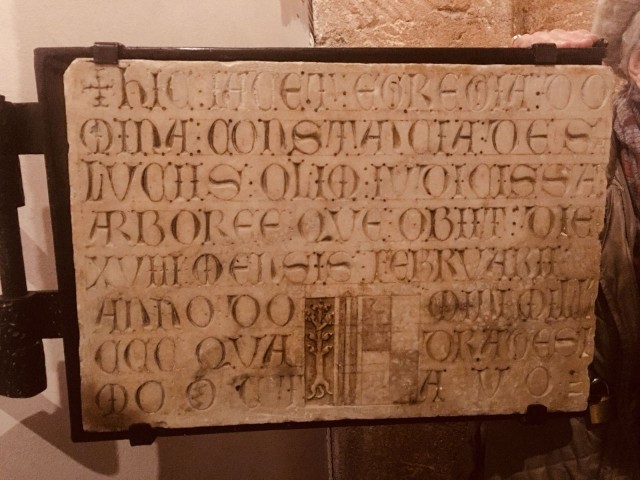 ✝ HIC : IACET : EGREGIA : DO
MINA : CONSTANCIA : DE S
LUCIIS : OLIM : IUDICISSA
ARBOREE QUE : OBIIT : DIE
XVIII MENSIS : FEBRVARII
ANNO DO MINI MILL
CCC QUA DRAGESI
MO O CT A V O :